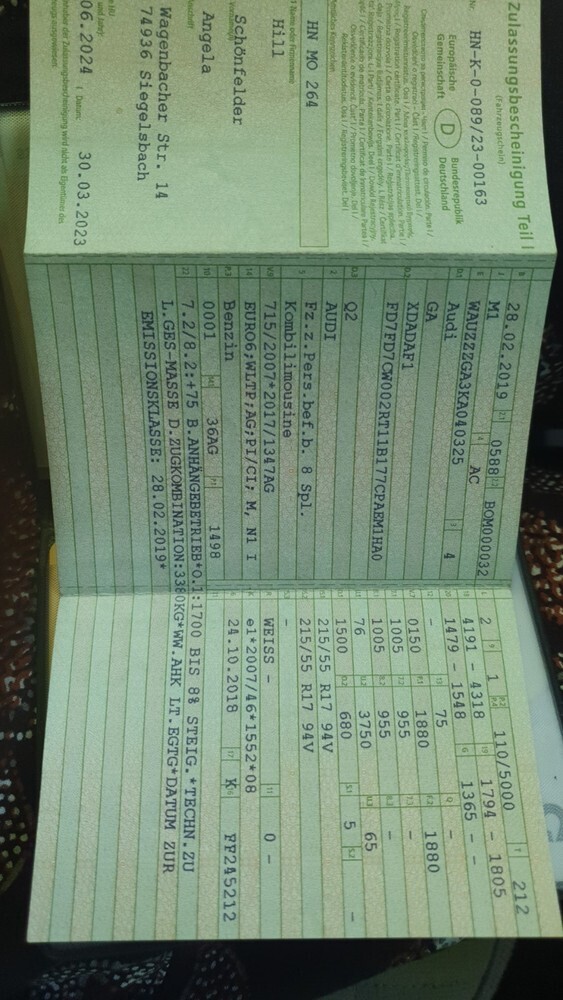 Zulassungsbescheinigung Teil I
(Fahrzeugschein)
Nr. HN-K-0-089/23-00163
Europäische Gemeinschaft
D
Bundesrepublik Deutschland
HN MO 264
Hill
Schönfelder
Angela
Wagenbacher Str. 14
74936 Siegelsbach
06.2024
30.03.2023
B 28.02.2019 2.1 0588 2.2 BOM000032
J M1 4 AC
E WAUZZZGA3KA040325 3 4
D.1 Audi
D.2 GA
XDADAF1
FD7FD7CW002RT11B177CPAEM1HA0
D.3 Q2
2 AUDI
5 Fz.z.Pers.bef.b. 8 Spl.
Kombilimousine
V.9 715/2007*2017/1347AG
14 EURO6;WLTP;AG;PI/CI; M, N1 I
P.3 Benzin
10 0001 14.1 36AG P.1 1498
22 7.2/8.2:+75 B.ANHÄNGEBETRIEB*O.1:1700 BIS 8% STEIG.*TECHN.ZU
L.GES-MASSE D.ZUGKOMBINATION:3380KG*WW.AHK LT.EGTG*DATUM ZUR
EMISSIONSKLASSE: 28.02.2019*
L 2 9 1 P.2 P.4 110/5000 T 212
18 4191 - 4318 19 1794 - 1805
20 1479 - 1548 G 1365 - -
12 - 13 75 Q -
V.7 0150 F.1 1880 F.2 1880
7.1 1005 7.2 955 7.3 -
8.1 1005 8.2 955 8.3 -
U.1 76 U.2 3750 U.3 65
O.1 1500 O.2 680 S.1 5 S.2 -
15.1 215/55 R17 94V
15.2 215/55 R17 94V
15.3 -
R WEISS - 11 0 -
K e1*2007/46*1552*08
6 24.10.2018 17 K 16 PP245212